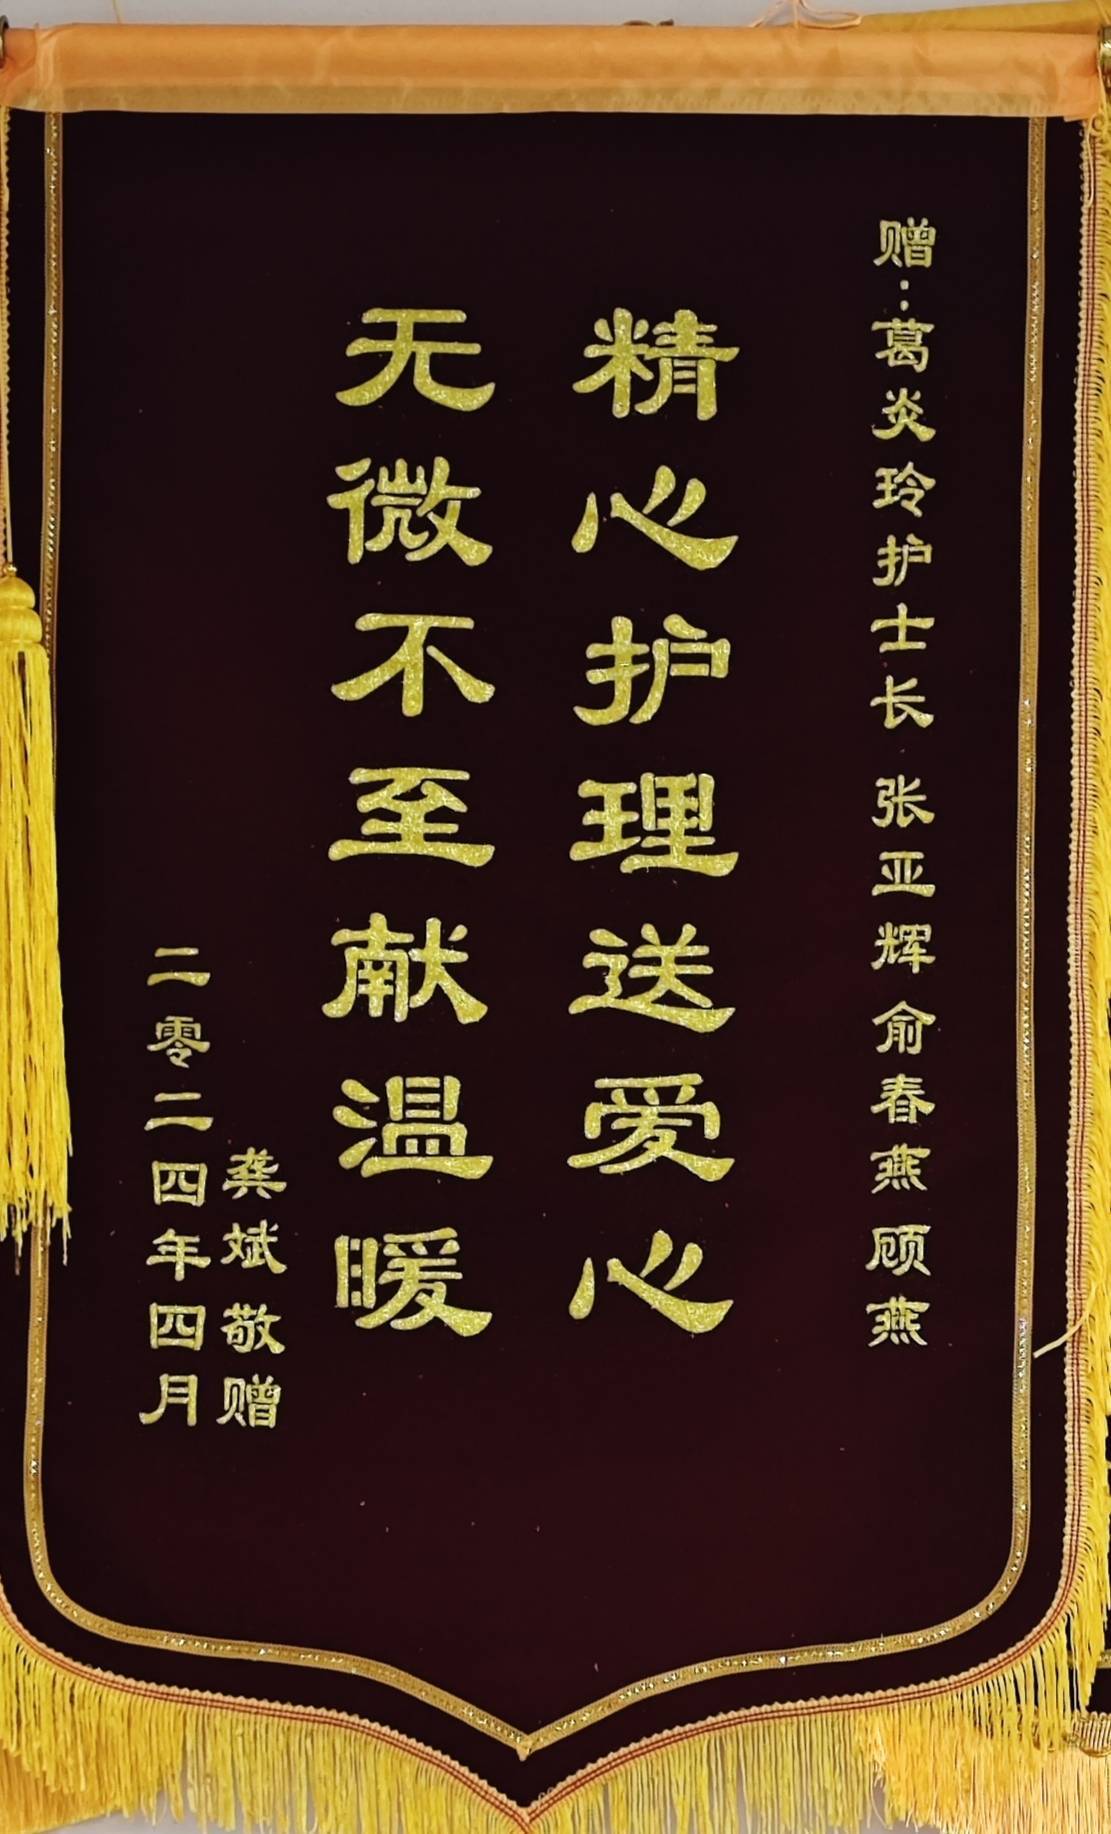 赠：葛炎玲护士长 张亚辉 俞春燕 顾燕
精心护理送爱心
无微不至献温暖
龚斌敬赠
二零二四年四月